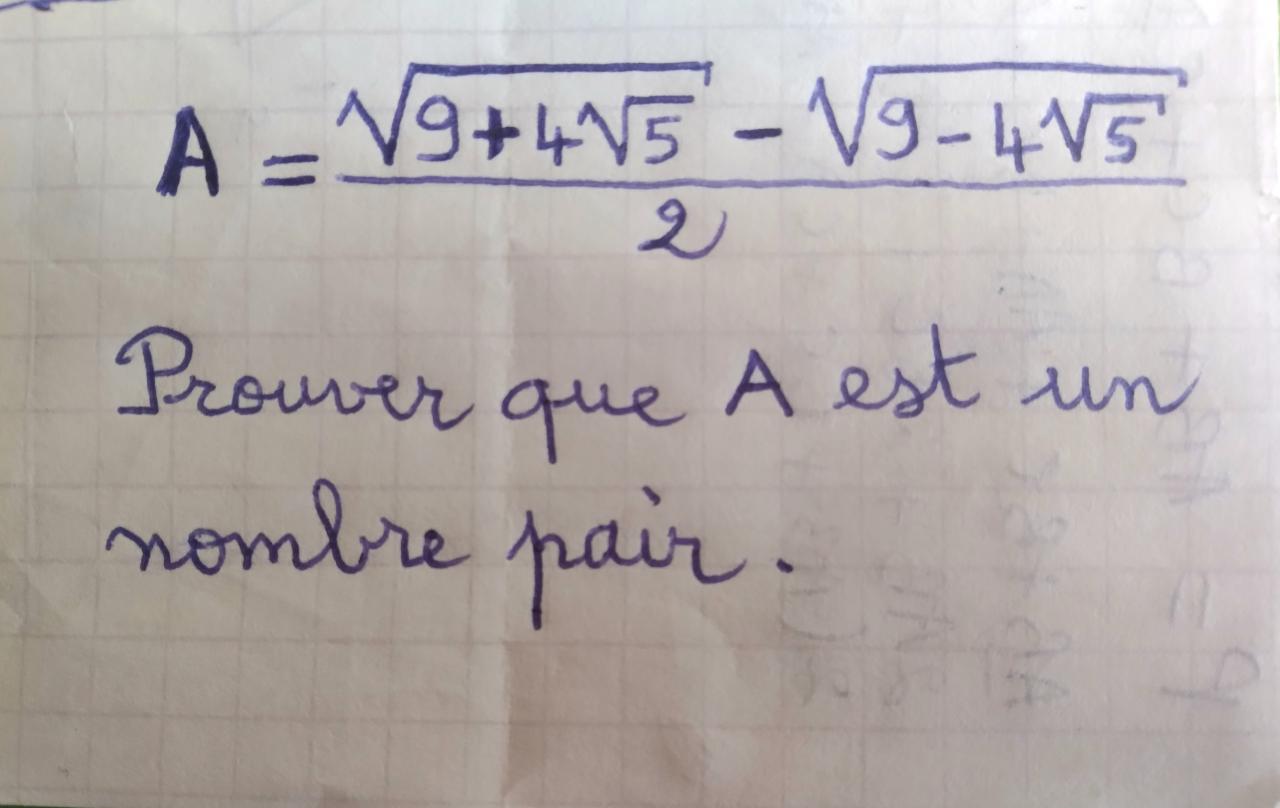 A = (√(9+4√5) - √(9-4√5)) / 2
Prouver que A est un
nombre pair.